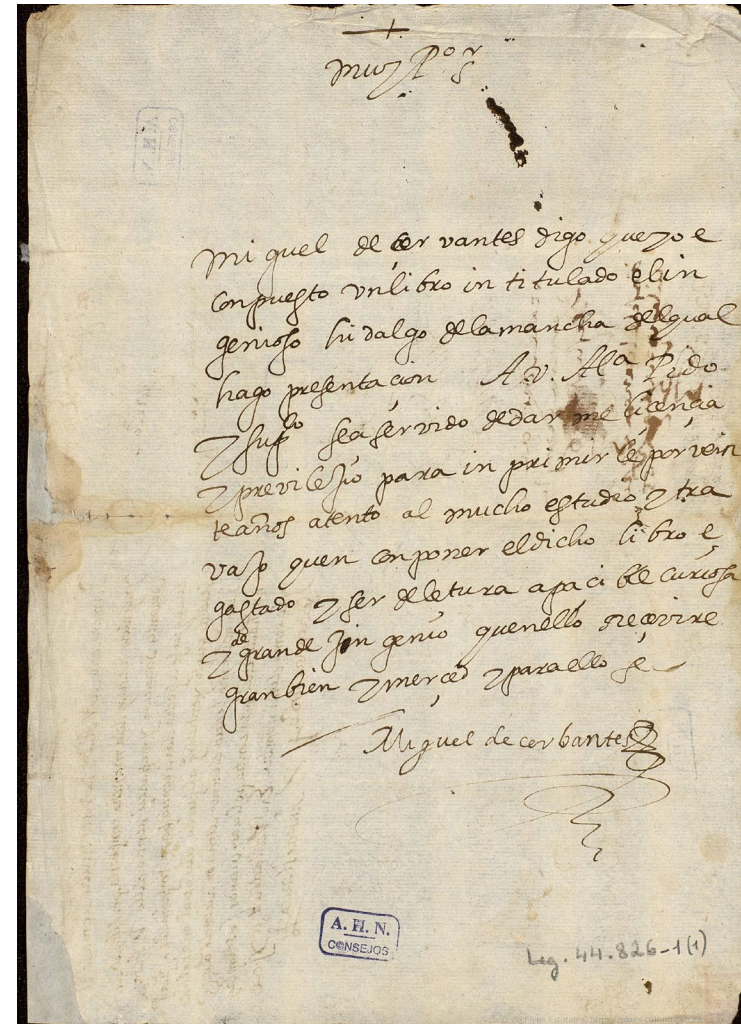 +
muy Pors
Miguel de cervantes digo que yo e
conpuesto un libro intitulado el in
genioso hidalgo de la mancha del qual
hago presentacion A v. Alª Pido
y supco sea servido de darme licencia
y previlejio para inprimirle por vein
te años atento al mucho estudio y tra
vajo quen conponer el dicho libro e
gastado y ser de letura apacible curiosa
y de grande ingenio quenello rrecevire
gran bien y merced y para ello
Miguel de cerbantes
A. H. N.
CONSEJOS
Leg. 44.826-1(1)